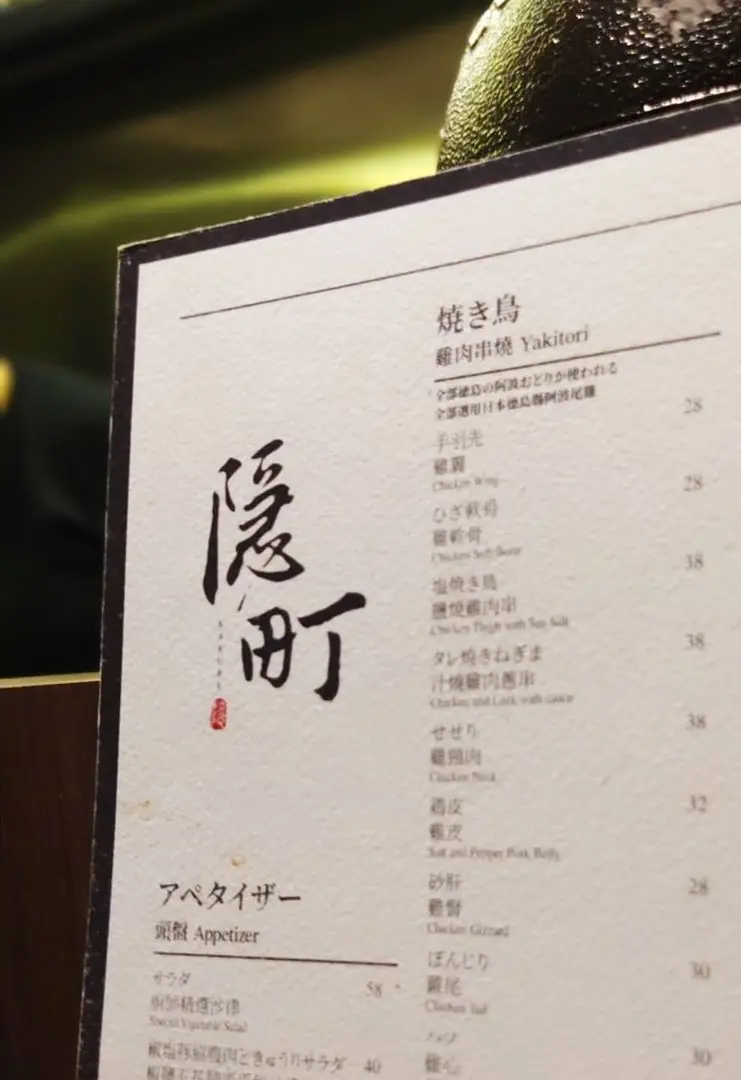 隱町
焼き鳥
雞肉串燒 Yakitori
全部徳島の阿波おどりが使われる
全部選用日本德島縣阿波尾雞
手羽先 28
雞翼
Chicken Wing
ひざ軟骨 28
雞軟骨
Chicken Soft Bone
塩焼き鳥 38
鹽燒雞肉串
Chicken Thigh with Sea Salt
タレ焼きねぎま 38
汁燒雞肉蔥串
Chicken and Leek with sauce
せせり 38
雞頸肉
Chicken Neck
鶏皮 32
雞皮
Salt and Pepper Pork Belly
砂肝 28
雞腎
Chicken Gizzard
ぼんじり 30
雞尾
Chicken Tail
ハツ 30
雞心
アペタイザー
頭盤 Appetizer
サラダ 58
廚師精選沙律
Special Vegetable Salad
きゅうりサラダ 40